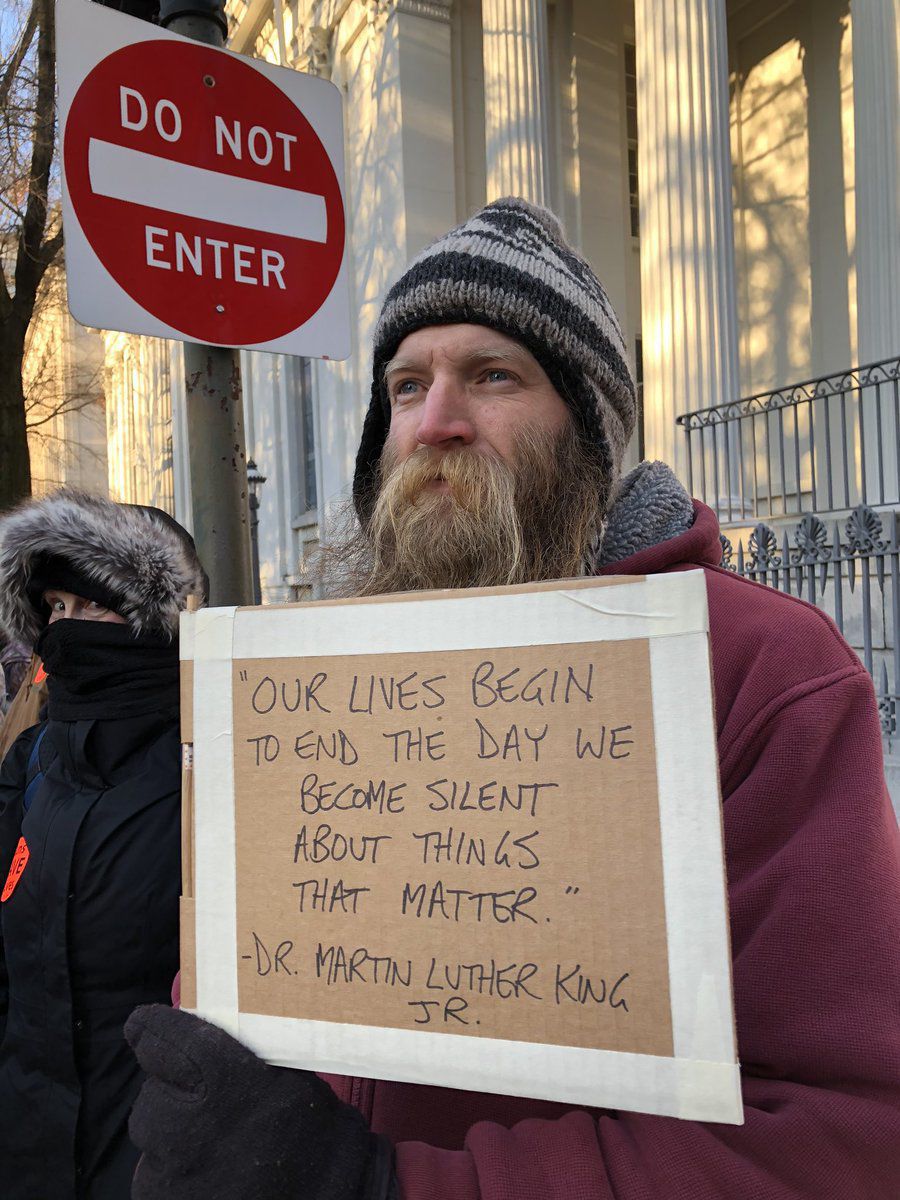 DO NOT
ENTER
"OUR LIVES BEGIN
TO END THE DAY WE
BECOME SILENT
ABOUT THINGS
THAT MATTER."
-DR. MARTIN LUTHER KING
JR.